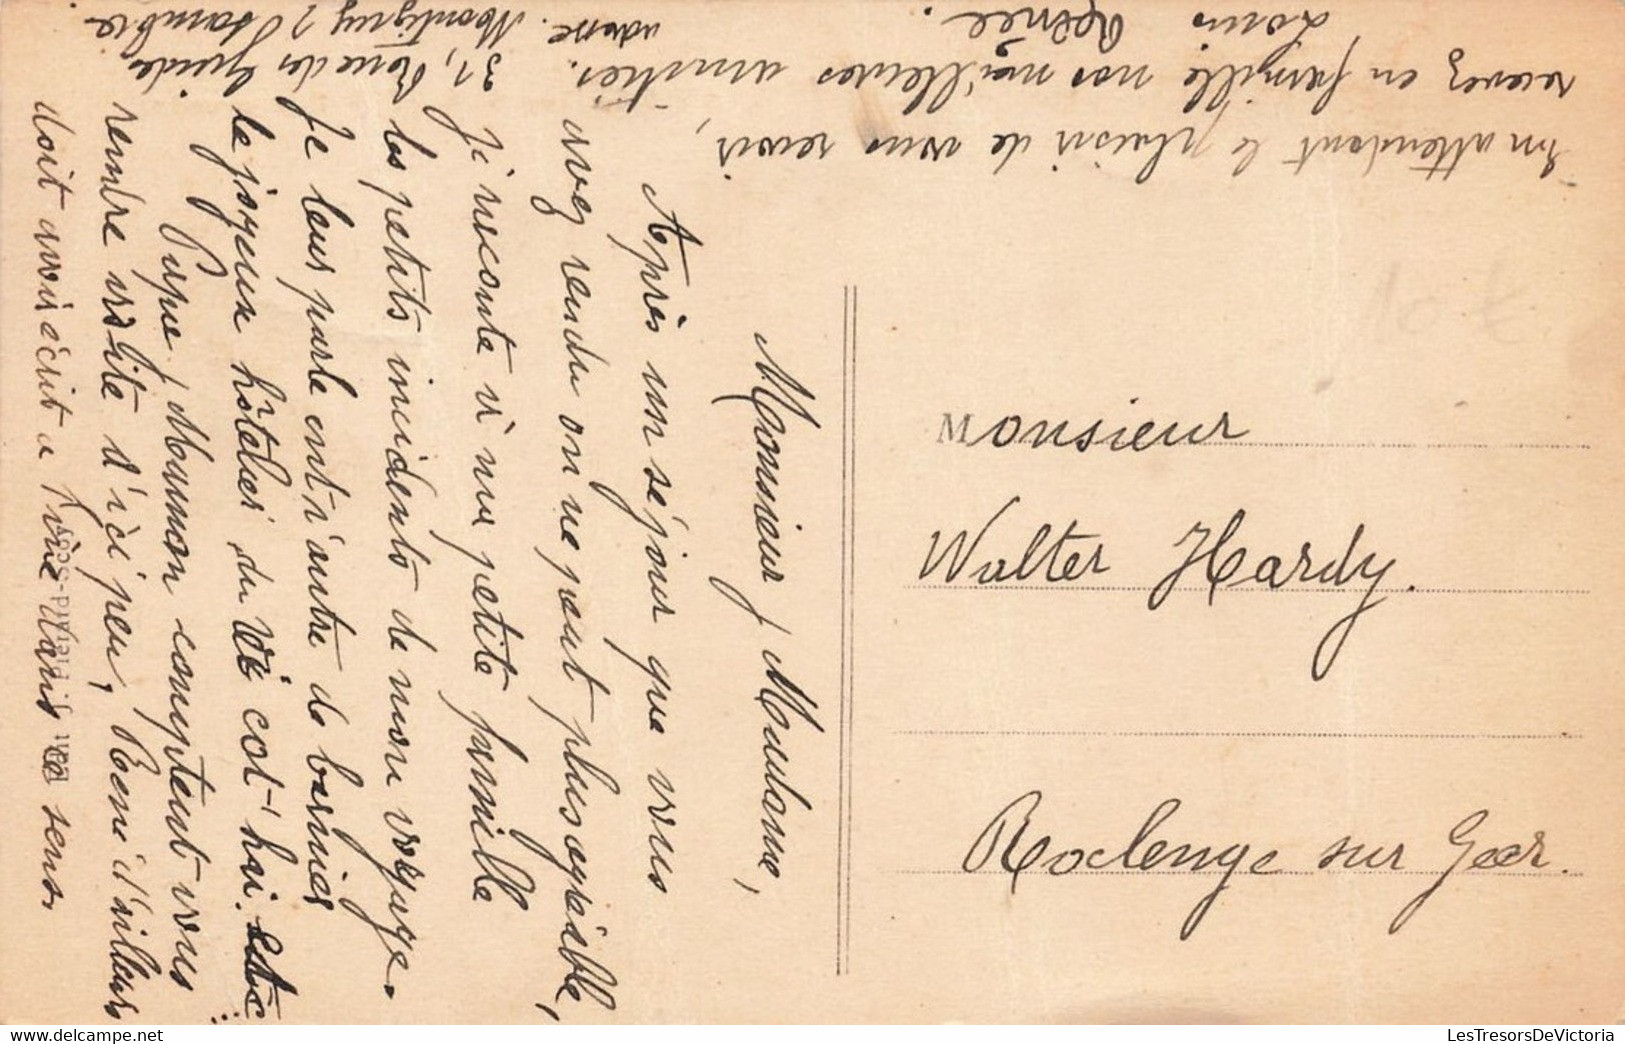 Monsieur, Madame,
Après un séjour que vous
avez rendu on ne peut plus agréable,
je raconte à ma petite famille
les petits incidents de mon voyage.
Je leur parle entr'autre de
le joyeux hôtelier du col
Papa, Maman comptent vous
rendre visite d'ici peu, René d'ailleurs
doit avoir écrit a dans ce sens.
En attendant le plaisir de vous revoir,
recevez en famille nos meilleures amitiés.
Louis René
adresse.
31, Rue des Guides
Montigny s/ Sambre.
Monsieur
Walter Hardy.
Roclenge sur Geer.
LesTresorsDeVictoria